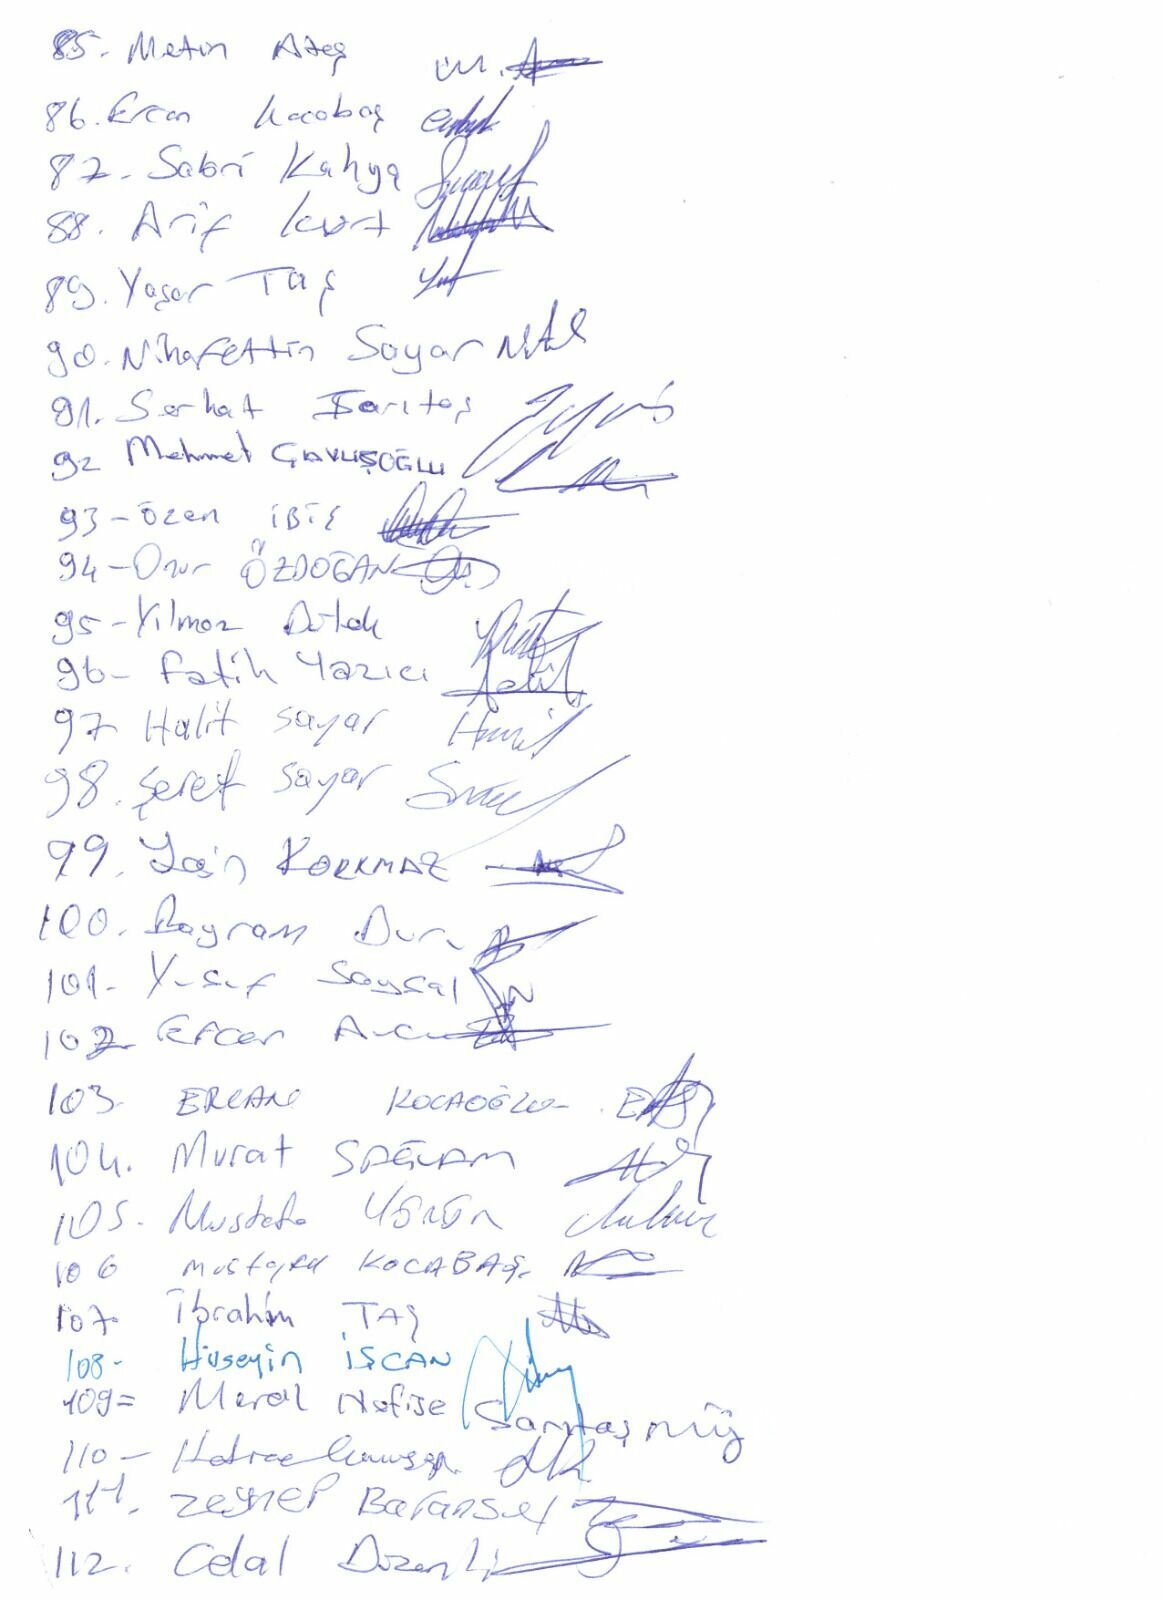 85. Metin Ateş
86. Ercan Kocabaş
87. Sabri Kahya
88. Arif Kurt
89. Yaşar Taş
90. Nihafettin Sayar
91. Serhat Sarıtaş
92 Mehmet ÇAVUŞOĞLU
93 - Özen İBİŞ
94 - Onur ÖZDOĞAN
95 - Yılmaz
96 - Fatih Yazıcı
97 Halit Sayar
98. Şeref Sayar
99. KORKMAZ
100. Bayram Duru
101 - Yusuf Soysal
102 Ercan
103 - ERCAN KOCAOĞLU
104. Murat SAĞLAM
105. Mustafa
106 Mustafa KOCABAŞ
107 - İbrahim TAŞ
108 - Hüseyin İŞCAN
109 = Meral Nafise Sarıtaş
110 - Hatice
111. Zeynep Baransel
112. Celal Düzenli